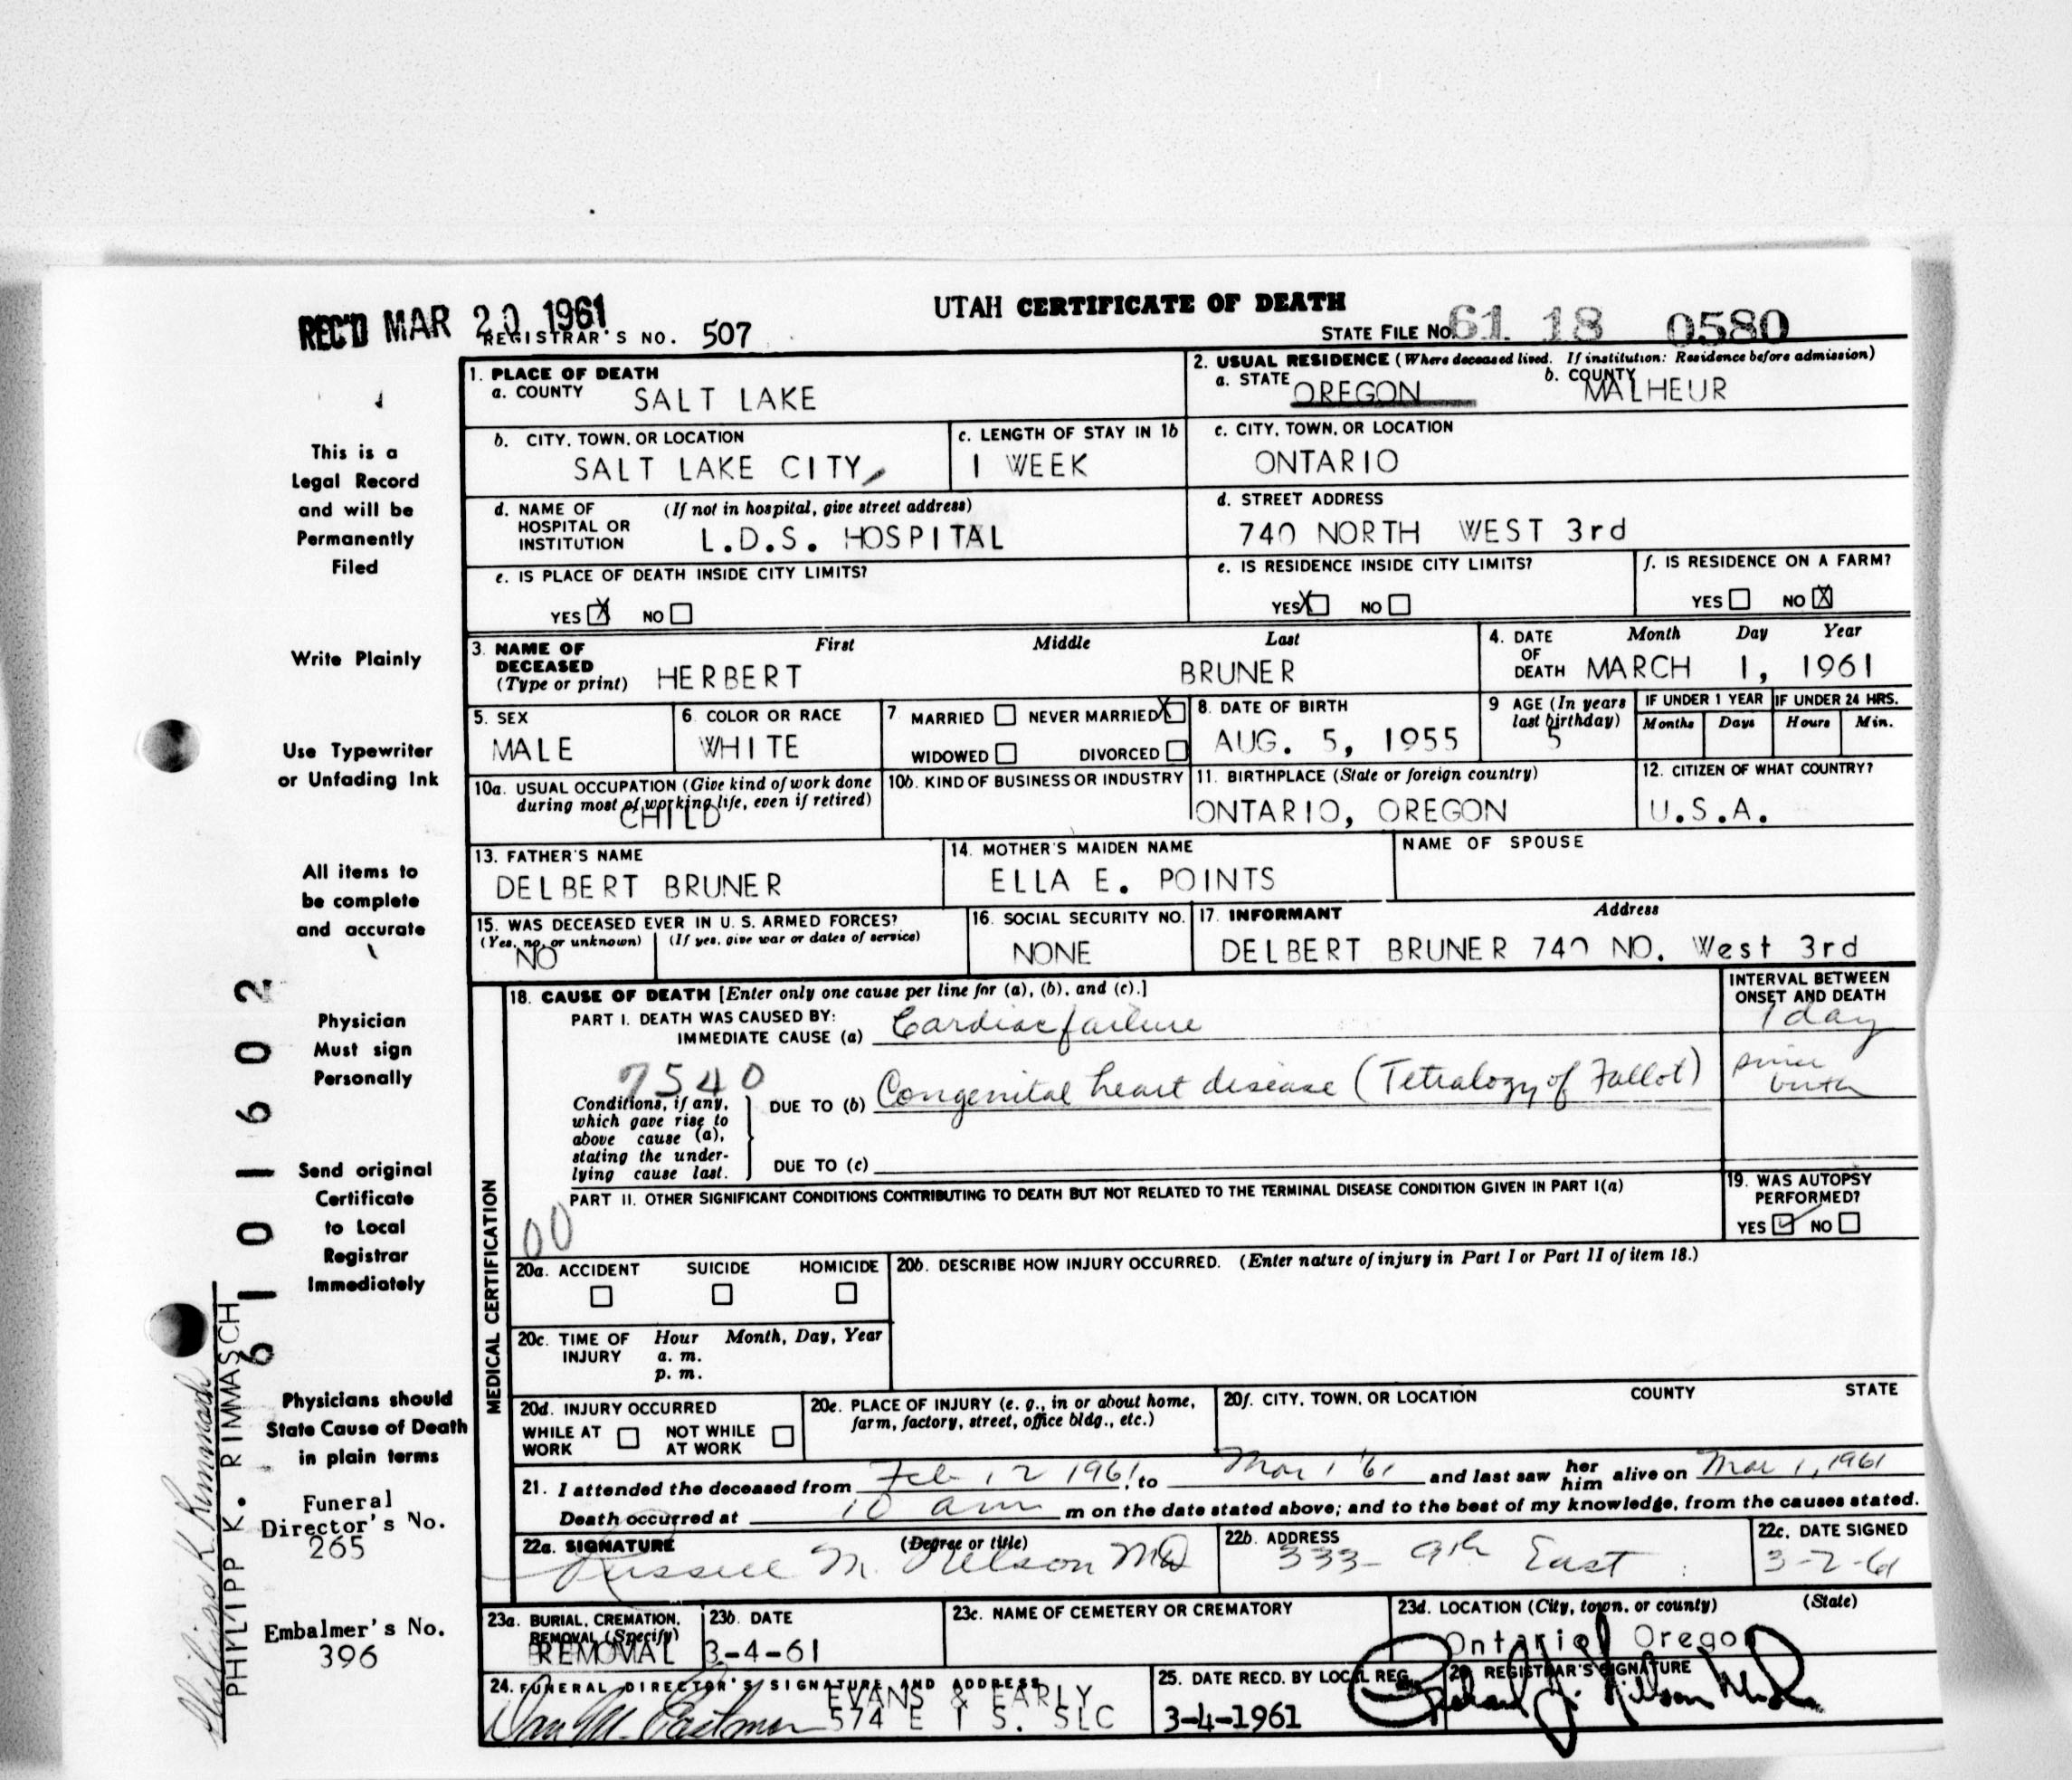 UTAH CERTIFICATE OF DEATH
REC'D MAR 20 1961
REGISTRAR'S NO. 507
STATE FILE No. 61 18 0580
1. PLACE OF DEATH
a. COUNTY SALT LAKE
2. USUAL RESIDENCE (Where deceased lived. If institution: Residence before admission)
a. STATE OREGON b. COUNTY MALHEUR
b. CITY, TOWN, OR LOCATION
SALT LAKE CITY,
c. LENGTH OF STAY IN 1b
1 WEEK
c. CITY, TOWN, OR LOCATION
ONTARIO
d. NAME OF HOSPITAL OR INSTITUTION (If not in hospital, give street address)
L.D.S. HOSPITAL
d. STREET ADDRESS
740 NORTH WEST 3rd
e. IS PLACE OF DEATH INSIDE CITY LIMITS?
YES X NO
e. IS RESIDENCE INSIDE CITY LIMITS?
YES X NO
f. IS RESIDENCE ON A FARM?
YES NO X
3. NAME OF DECEASED (Type or print)
First Middle Last
HERBERT BRUNER
4. DATE OF DEATH Month Day Year
MARCH 1, 1961
5. SEX
MALE
6. COLOR OR RACE
WHITE
7 MARRIED NEVER MARRIED X
WIDOWED DIVORCED
8. DATE OF BIRTH
AUG. 5, 1955
9 AGE (In years last birthday)
5
IF UNDER 1 YEAR
Months Days
IF UNDER 24 HRS.
Hours Min.
10a. USUAL OCCUPATION (Give kind of work done during most of working life, even if retired)
CHILD
10b. KIND OF BUSINESS OR INDUSTRY
11. BIRTHPLACE (State or foreign country)
ONTARIO, OREGON
12. CITIZEN OF WHAT COUNTRY?
U.S.A.
13. FATHER'S NAME
DELBERT BRUNER
14. MOTHER'S MAIDEN NAME
ELLA E. POINTS
NAME OF SPOUSE
15. WAS DECEASED EVER IN U. S. ARMED FORCES?
(Yes, no, or unknown) (If yes, give war or dates of service)
NO
16. SOCIAL SECURITY NO.
NONE
17. INFORMANT Address
DELBERT BRUNER 740 NO. West 3rd
MEDICAL CERTIFICATION
18. CAUSE OF DEATH [Enter only one cause per line for (a), (b), and (c).]
INTERVAL BETWEEN ONSET AND DEATH
PART I. DEATH WAS CAUSED BY:
IMMEDIATE CAUSE (a) Cardiac failure
1 day
7540
Conditions, if any, which gave rise to above cause (a), stating the underlying cause last.
DUE TO (b) Congenital heart disease (Tetralogy of Fallot)
since birth
DUE TO (c)
PART II. OTHER SIGNIFICANT CONDITIONS CONTRIBUTING TO DEATH BUT NOT RELATED TO THE TERMINAL DISEASE CONDITION GIVEN IN PART I(a)
00
19. WAS AUTOPSY PERFORMED?
YES ✓ NO
20a. ACCIDENT SUICIDE HOMICIDE
20b. DESCRIBE HOW INJURY OCCURRED. (Enter nature of injury in Part I or Part II of item 18.)
20c. TIME OF INJURY Hour Month, Day, Year
a. m.
p. m.
20d. INJURY OCCURRED
WHILE AT WORK NOT WHILE AT WORK
20e. PLACE OF INJURY (e. g., in or about home, farm, factory, street, office bldg., etc.)
20f. CITY, TOWN, OR LOCATION COUNTY STATE
21. I attended the deceased from Feb 12 1961, to Mar 1 '61 and last saw her him alive on Mar 1, 1961
Death occurred at 10 am m on the date stated above; and to the best of my knowledge, from the causes stated.
22a. SIGNATURE (Degree or title)
Russell M. Nelson MD
22b. ADDRESS
333 - 9th East
22c. DATE SIGNED
3-2-61
23a. BURIAL, CREMATION, REMOVAL (Specify)
REMOVAL
23b. DATE
3-4-61
23c. NAME OF CEMETERY OR CREMATORY
23d. LOCATION (City, town, or county) (State)
Ontario, Oregon
24. FUNERAL DIRECTOR'S SIGNATURE AND ADDRESS
EVANS & EARLY
574 E 1 S. SLC
25. DATE RECD. BY LOCAL REG.
3-4-1961
26. REGISTRAR'S SIGNATURE
This is a
Legal Record
and will be
Permanently
Filed
Write Plainly
Use Typewriter
or Unfading Ink
All items to
be complete
and accurate
Physician
Must sign
Personally
Send original
Certificate
to Local
Registrar
Immediately
Physicians should
State Cause of Death
in plain terms
Funeral
Director's No.
265
Embalmer's No.
396
6101602
PHILIPP K. RIMMASCH